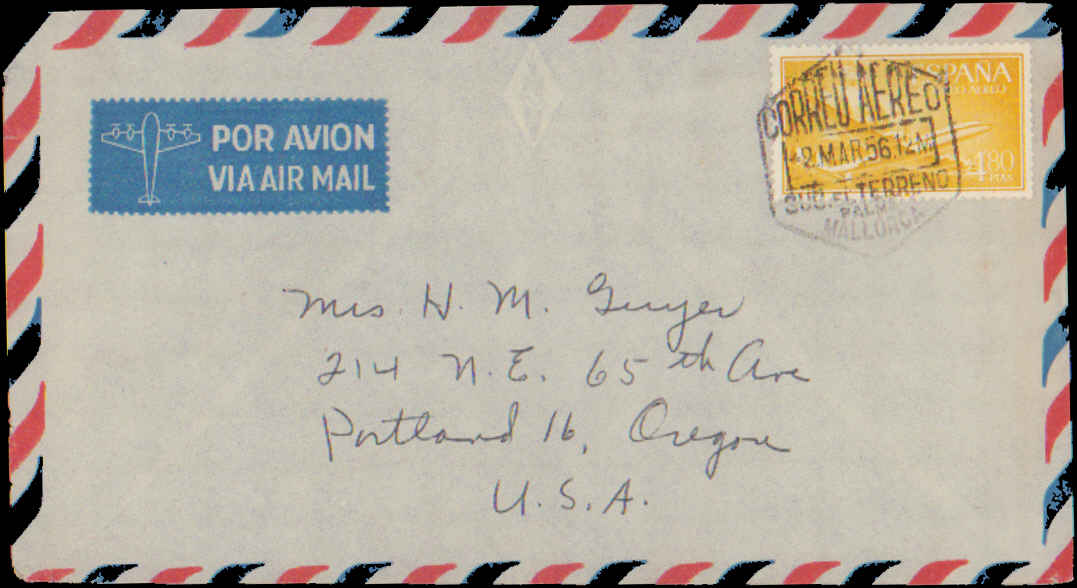 POR AVION
VIA AIR MAIL
ESPAÑA
CORREO AEREO
4'80
PTAS
CORREO AEREO
2.MAR56.12M
SUC. El TERRENO
PALMA
MALLORCA
Mrs. H. M. Guyer
214 N.E. 65th Ave
Portland 16, Oregon
U.S.A.